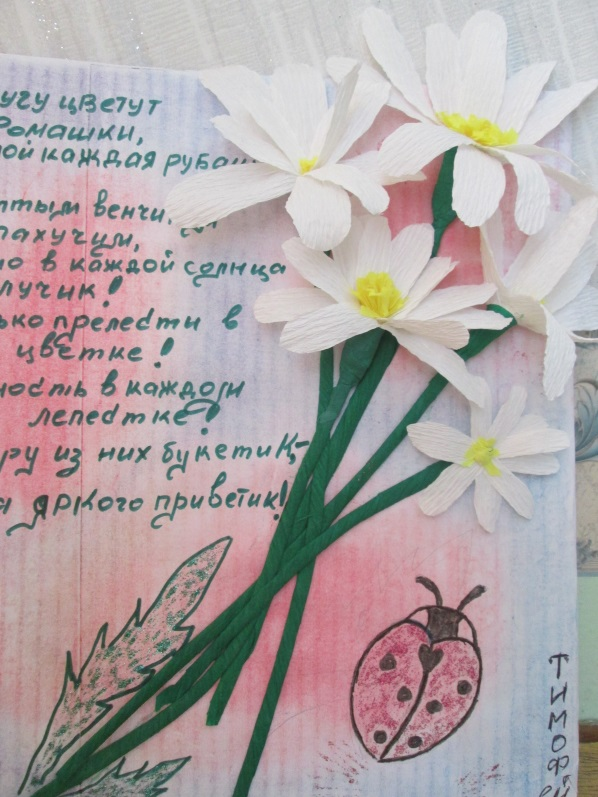 угу цветут
Ромашки,
ой каждая рубаш
лтым венчи
пахучим,
но в каждой солнца
лучик!
ько прелести в
цветке!
ность в каждом
лепестке!
ру из них букетик,-
я яркого приветик!
ТИМОФ